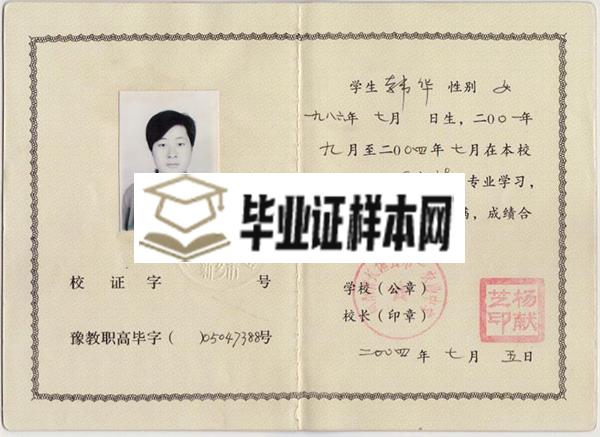 校证字 号
豫教职高毕字( )05047388号
学生 韩华 性别 女
一九八六年 七月 日生,二〇〇一年
九月至二〇〇四年七月在本校
专业学习,
满,成绩合
毕业证样本网
学校(公章)
校长(印章)
杨献芝印
二〇〇四年 七月 五日